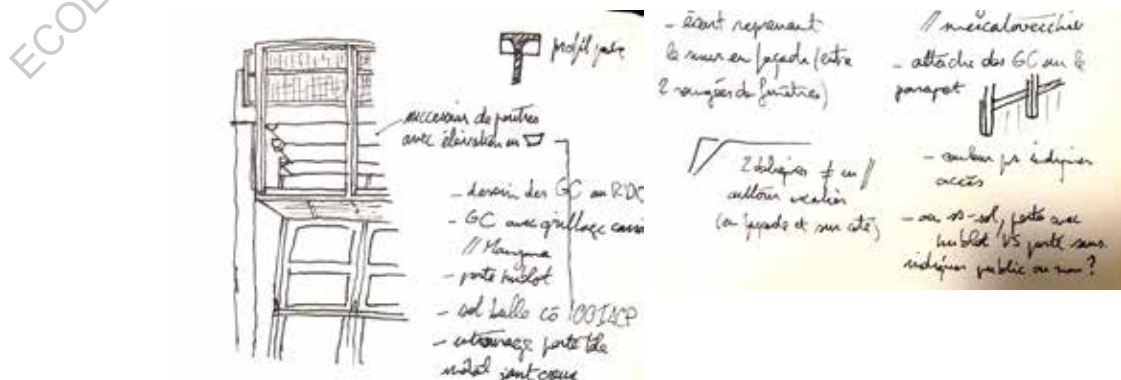 ECOL
profil
succession de poutres
avec élévation en
- dessin des GC au RDC
- GC avec grillage
//
- porte hublot
- sol
- entourage porte
métal joint creux
- écart reprenant
le mur en façade (entre
2 rangées de fenêtres)
2 obliques ≠ en //
autour escalier
(en façade et sur côté)
// mercatovecchio
- attache des GC sur le
parapet
- couleur pr indiquer
accès
- au ss-sol, porte avec
hublot VS porte sans
indiquer public ou non?